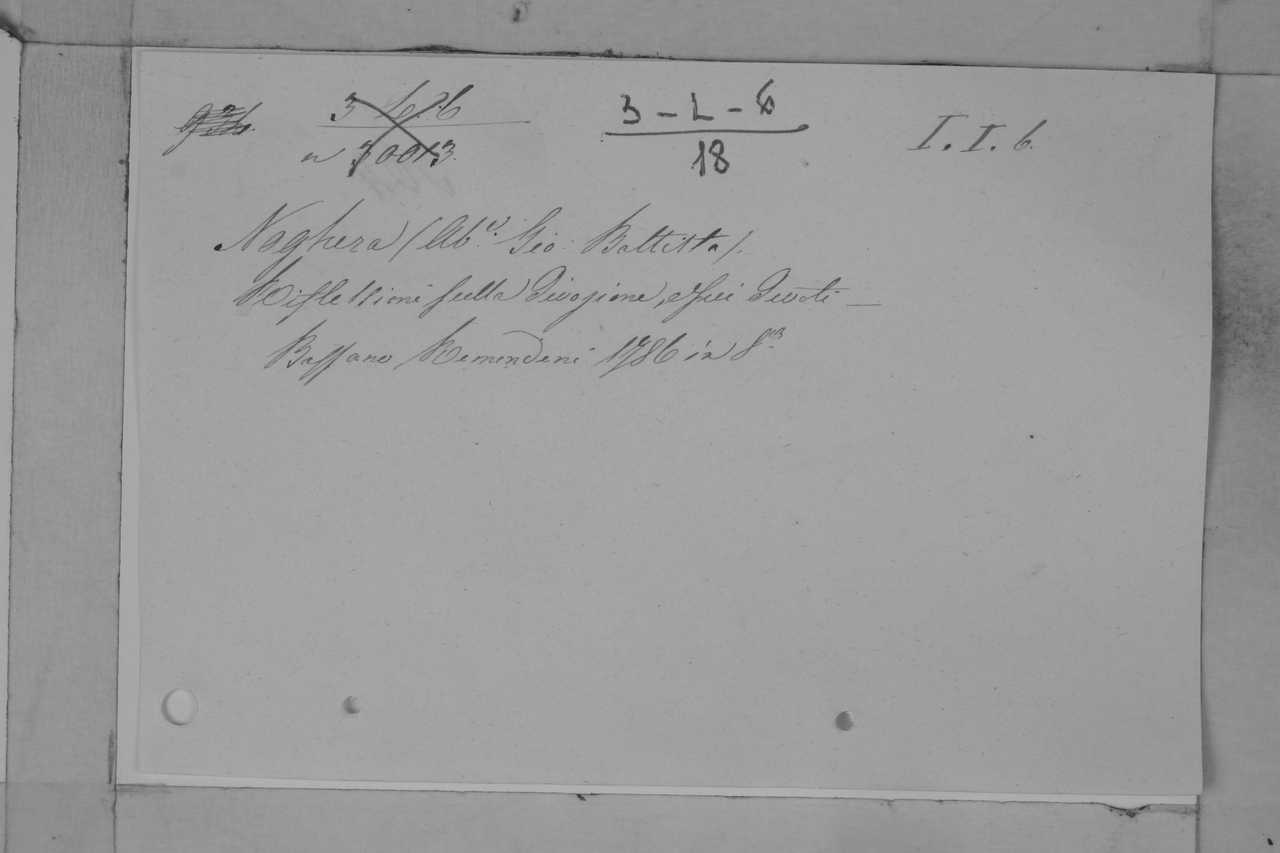 3 - L - 6 I. I. 6.
18
Noghera (Ab.e Gio: Battista).
Riflessioni sulla Divozione, e sui Devoti —
Bassano Remondini 1786 in 8.vo